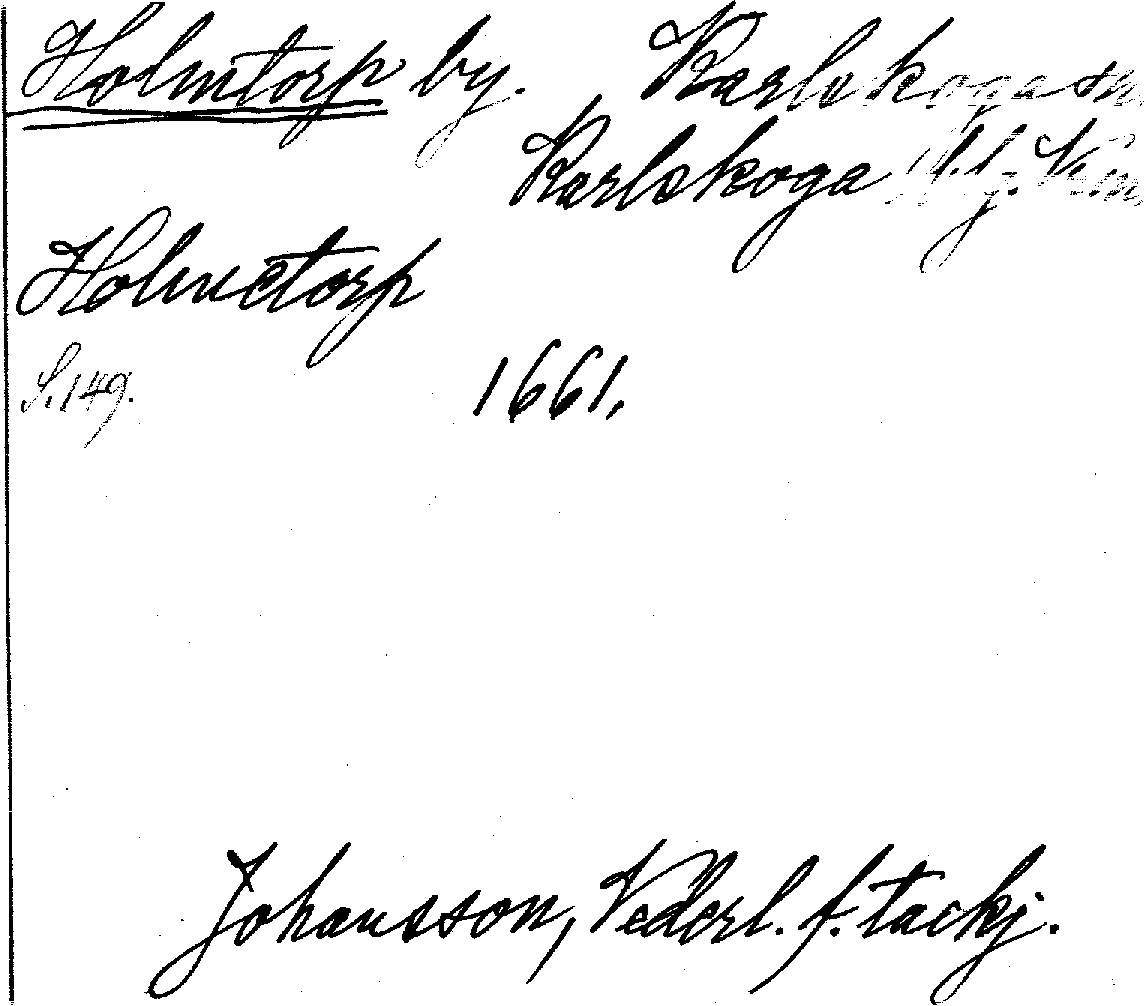 Holmtorp by. Karlskoga sn.
Karlskoga
Holmetorp
S. 149. 1661.
Johansson, Nederl. f. tackj.